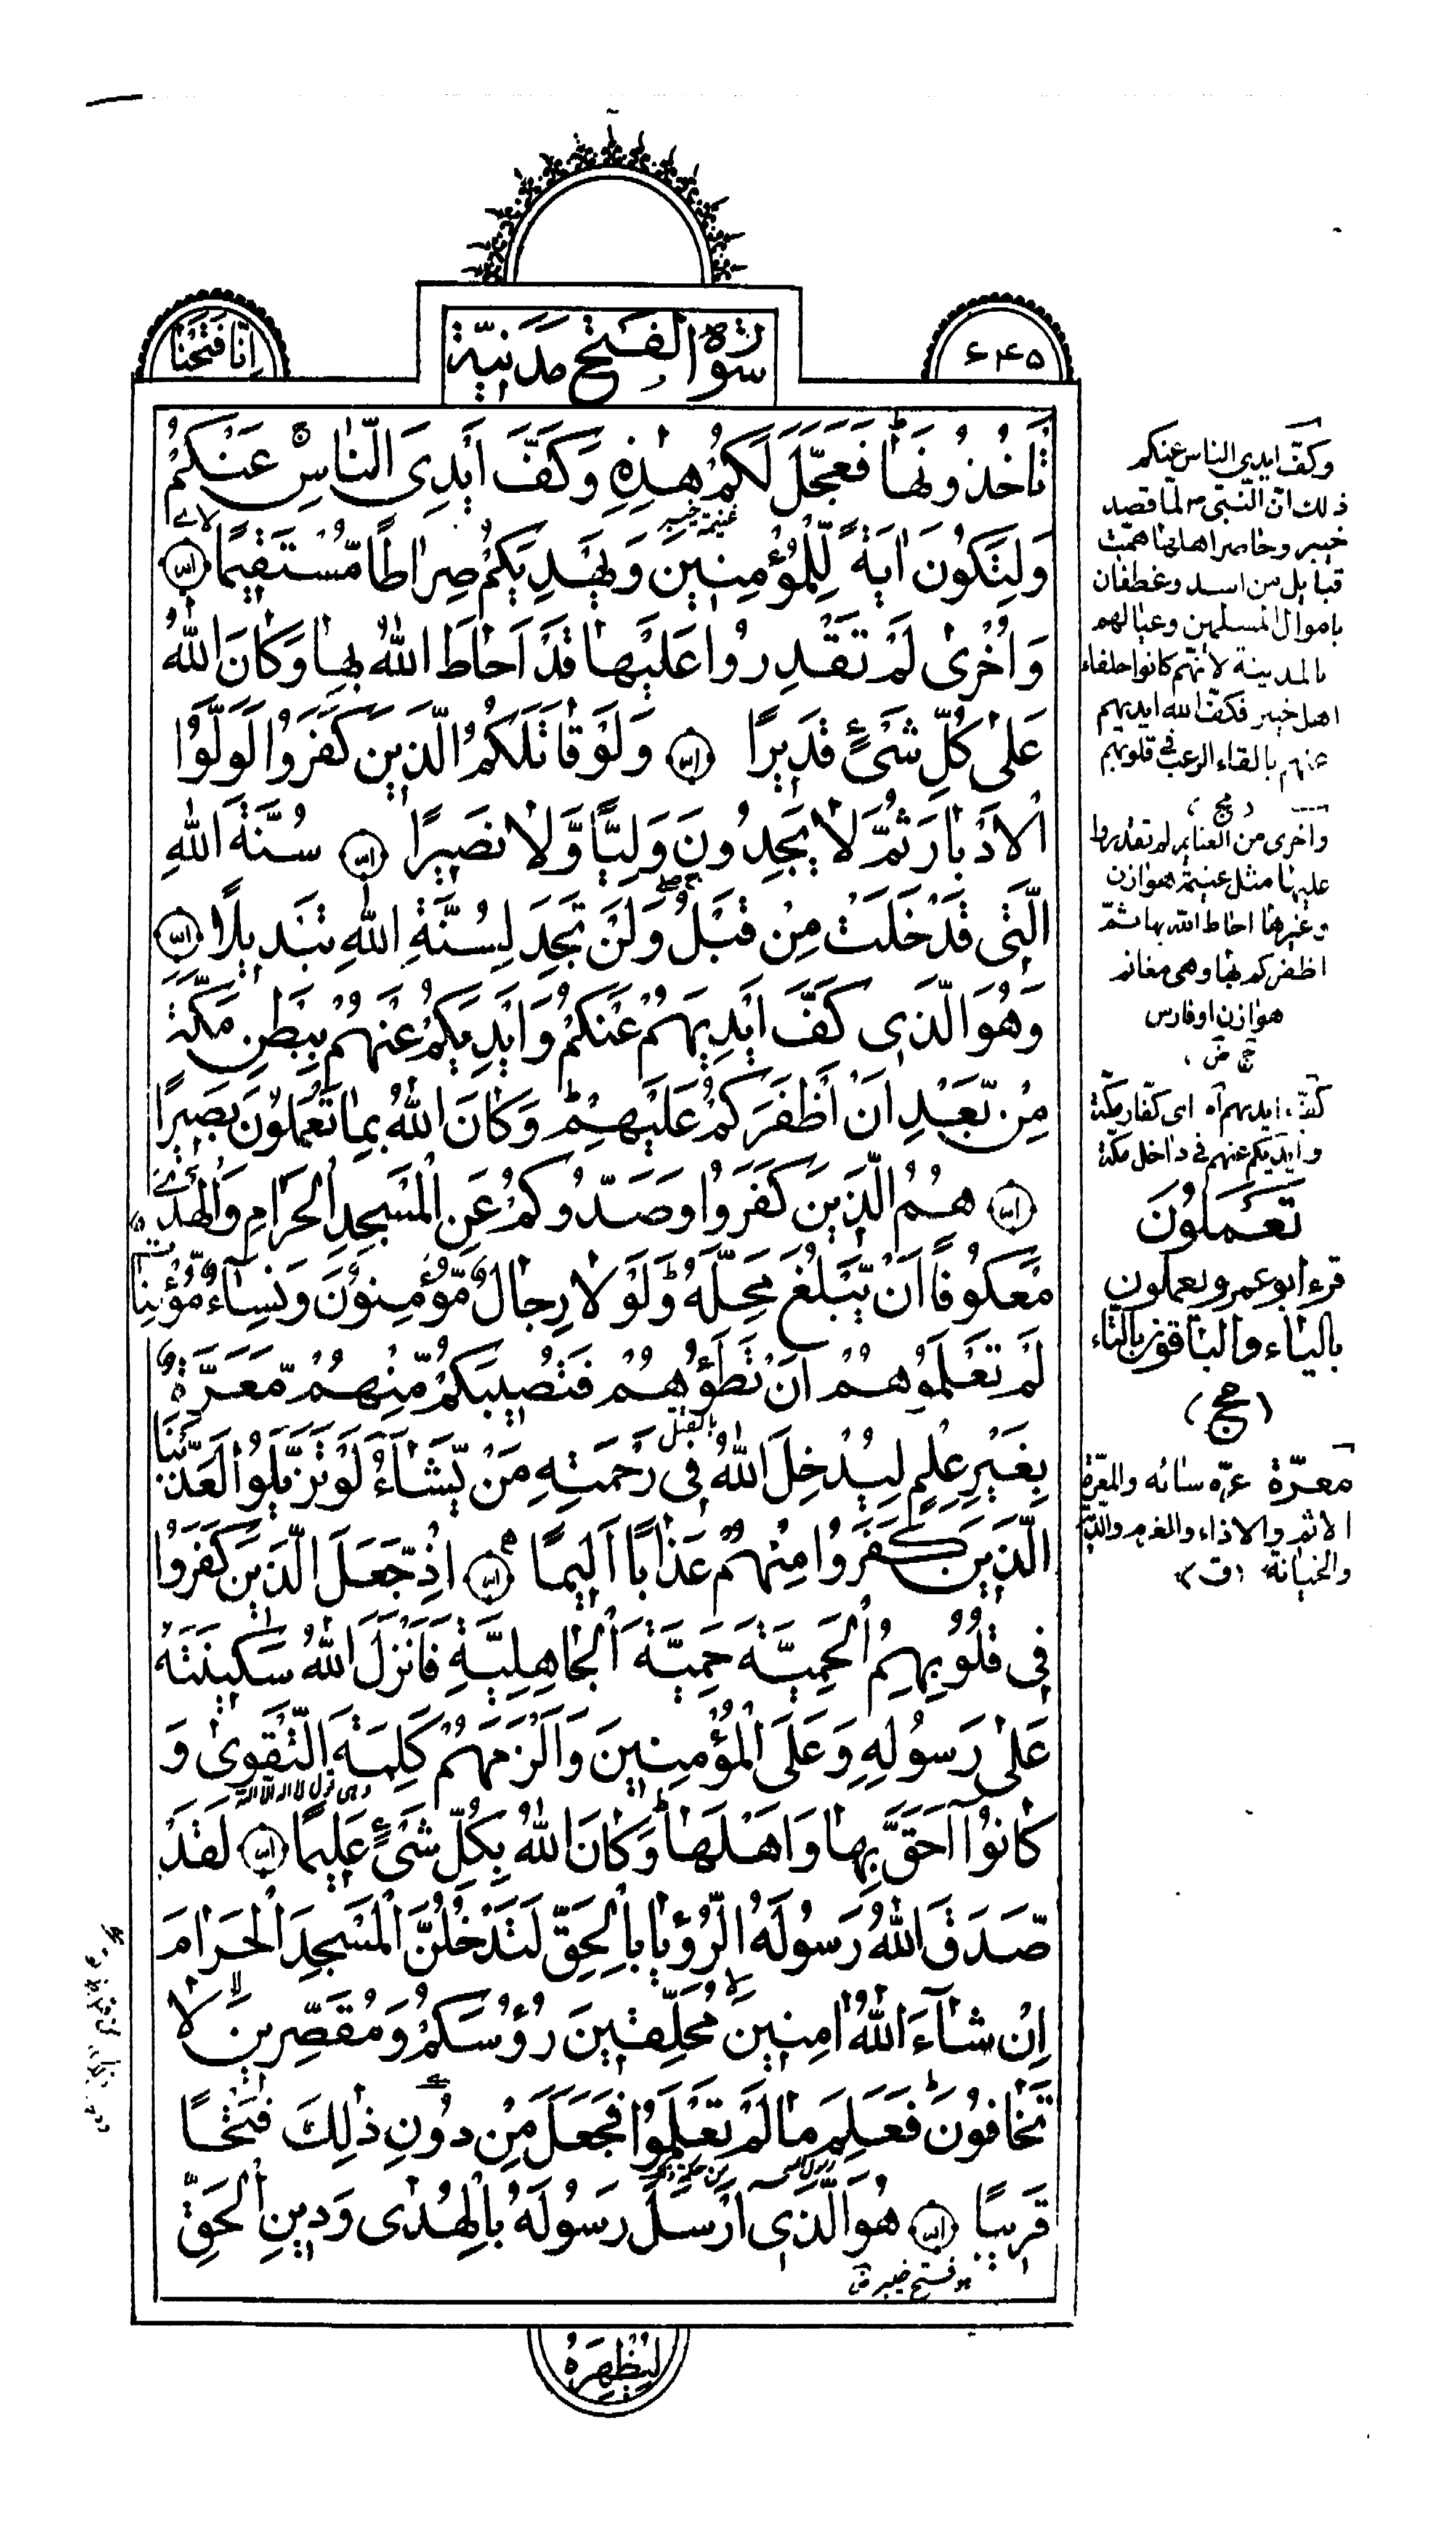 ٦٤٥
سُورَةُ الْفَتْحِ مَدَنِيَّة
اِنَّا فَتَحْنَا
تَاْخُذُوْنَهَا فَعَجَّلَ لَكُمْ هٰذِهٖ وَكَفَّ اَيْدِيَ النَّاسِ عَنْكُمْ
غنيمة خيبر
وَلِتَكُوْنَ اٰيَةً لِّلْمُؤْمِنِيْنَ وَيَهْدِيَكُمْ صِرَاطًا مُّسْتَقِيْمًا
وَاُخْرٰى لَمْ تَقْدِرُوْا عَلَيْهَا قَدْ اَحَاطَ اللّٰهُ بِهَا وَكَانَ اللّٰهُ
عَلٰى كُلِّ شَيْءٍ قَدِيْرًا وَلَوْ قَاتَلَكُمُ الَّذِيْنَ كَفَرُوْا لَوَلَّوُا
الْاَدْبَارَ ثُمَّ لَا يَجِدُوْنَ وَلِيًّا وَّلَا نَصِيْرًا سُنَّةَ اللّٰهِ
الَّتِيْ قَدْ خَلَتْ مِنْ قَبْلُ وَلَنْ تَجِدَ لِسُنَّةِ اللّٰهِ تَبْدِيْلًا
وَهُوَ الَّذِيْ كَفَّ اَيْدِيَهُمْ عَنْكُمْ وَاَيْدِيَكُمْ عَنْهُمْ بِبَطْنِ مَكَّةَ
مِنْۢ بَعْدِ اَنْ اَظْفَرَكُمْ عَلَيْهِمْ وَكَانَ اللّٰهُ بِمَا تَعْمَلُوْنَ بَصِيْرًا
هُمُ الَّذِيْنَ كَفَرُوْا وَصَدُّوْكُمْ عَنِ الْمَسْجِدِ الْحَرَامِ وَالْهَدْيَ
مَعْكُوْفًا اَنْ يَّبْلُغَ مَحِلَّهٗ وَلَوْلَا رِجَالٌ مُّؤْمِنُوْنَ وَنِسَآءٌ مُّؤْمِنَاتٌ
لَمْ تَعْلَمُوْهُمْ اَنْ تَطَـُٔوْهُمْ فَتُصِيْبَكُمْ مِّنْهُمْ مَّعَرَّةٌ
بالقتل
بِغَيْرِ عِلْمٍ لِيُدْخِلَ اللّٰهُ فِيْ رَحْمَتِهٖ مَنْ يَّشَآءُ لَوْ تَزَيَّلُوْا لَعَذَّبْنَا
الَّذِيْنَ كَفَرُوْا مِنْهُمْ عَذَابًا اَلِيْمًا اِذْ جَعَلَ الَّذِيْنَ كَفَرُوْا
فِيْ قُلُوْبِهِمُ الْحَمِيَّةَ حَمِيَّةَ الْجَاهِلِيَّةِ فَاَنْزَلَ اللّٰهُ سَكِيْنَتَهٗ
عَلٰى رَسُوْلِهٖ وَعَلَى الْمُؤْمِنِيْنَ وَاَلْزَمَهُمْ كَلِمَةَ التَّقْوٰى وَ
وهي قول لا اله الا الله
كَانُوْٓا اَحَقَّ بِهَا وَاَهْلَهَا وَكَانَ اللّٰهُ بِكُلِّ شَيْءٍ عَلِيْمًا لَقَدْ
صَدَقَ اللّٰهُ رَسُوْلَهُ الرُّؤْيَا بِالْحَقِّ لَتَدْخُلُنَّ الْمَسْجِدَ الْحَرَامَ
اِنْ شَآءَ اللّٰهُ اٰمِنِيْنَ مُحَلِّقِيْنَ رُءُوْسَكُمْ وَمُقَصِّرِيْنَ لَا
تَخَافُوْنَ فَعَلِمَ مَا لَمْ تَعْلَمُوْا فَجَعَلَ مِنْ دُوْنِ ذٰلِكَ فَتْحًا
قَرِيْبًا هُوَ الَّذِيْٓ اَرْسَلَ رَسُوْلَهٗ بِالْهُدٰى وَدِيْنِ الْحَقِّ
هو فتح خيبر
لِيُظْهِرَهٗ
وكفّ ايدي الناس عنكم
ذلك ان النبي لما قصد
خيبر وحاصر اهلها همّت
قبايل من اسد وغطفان
باموال المسلمين وعيالهم
بالمدينة لانهم كانوا حلفاء
اهل خيبر فكفّ الله ايديهم
عنهم بالقاء الرعب في قلوبهم
واخرى من الغنايم لم تقدروا
عليها مثل غنيمة هوازن
وغيرها احاط الله بها ثم
اظفركم بها وهي مغانم
هوازن او فارس
كفّ ايديهم اه اى كفّار مكّة
وايديكم عنهم في داخل مكّة
تَعْمَلُوْنَ
قرء ابو عمرو يعملون
بالياء والباقون بالتاء
معرّة عرّه سائه والمعرّة
الاثم والاذاء والمغرم والديّة
والخيانة (ق)